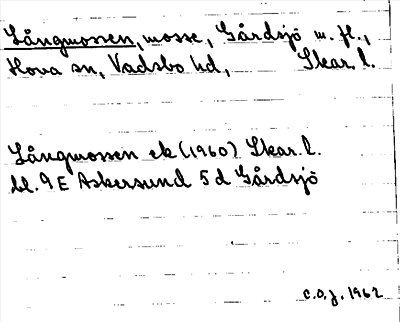 Långmossen, mosse, Gårdsjö m. fl.,
Hova sn, Vadsbo hd, Skar. l.
Långmossen ek (1960) Skar. l.
bl. 9 E Askersund 5 d Gårdsjö
C.O.J. 1962